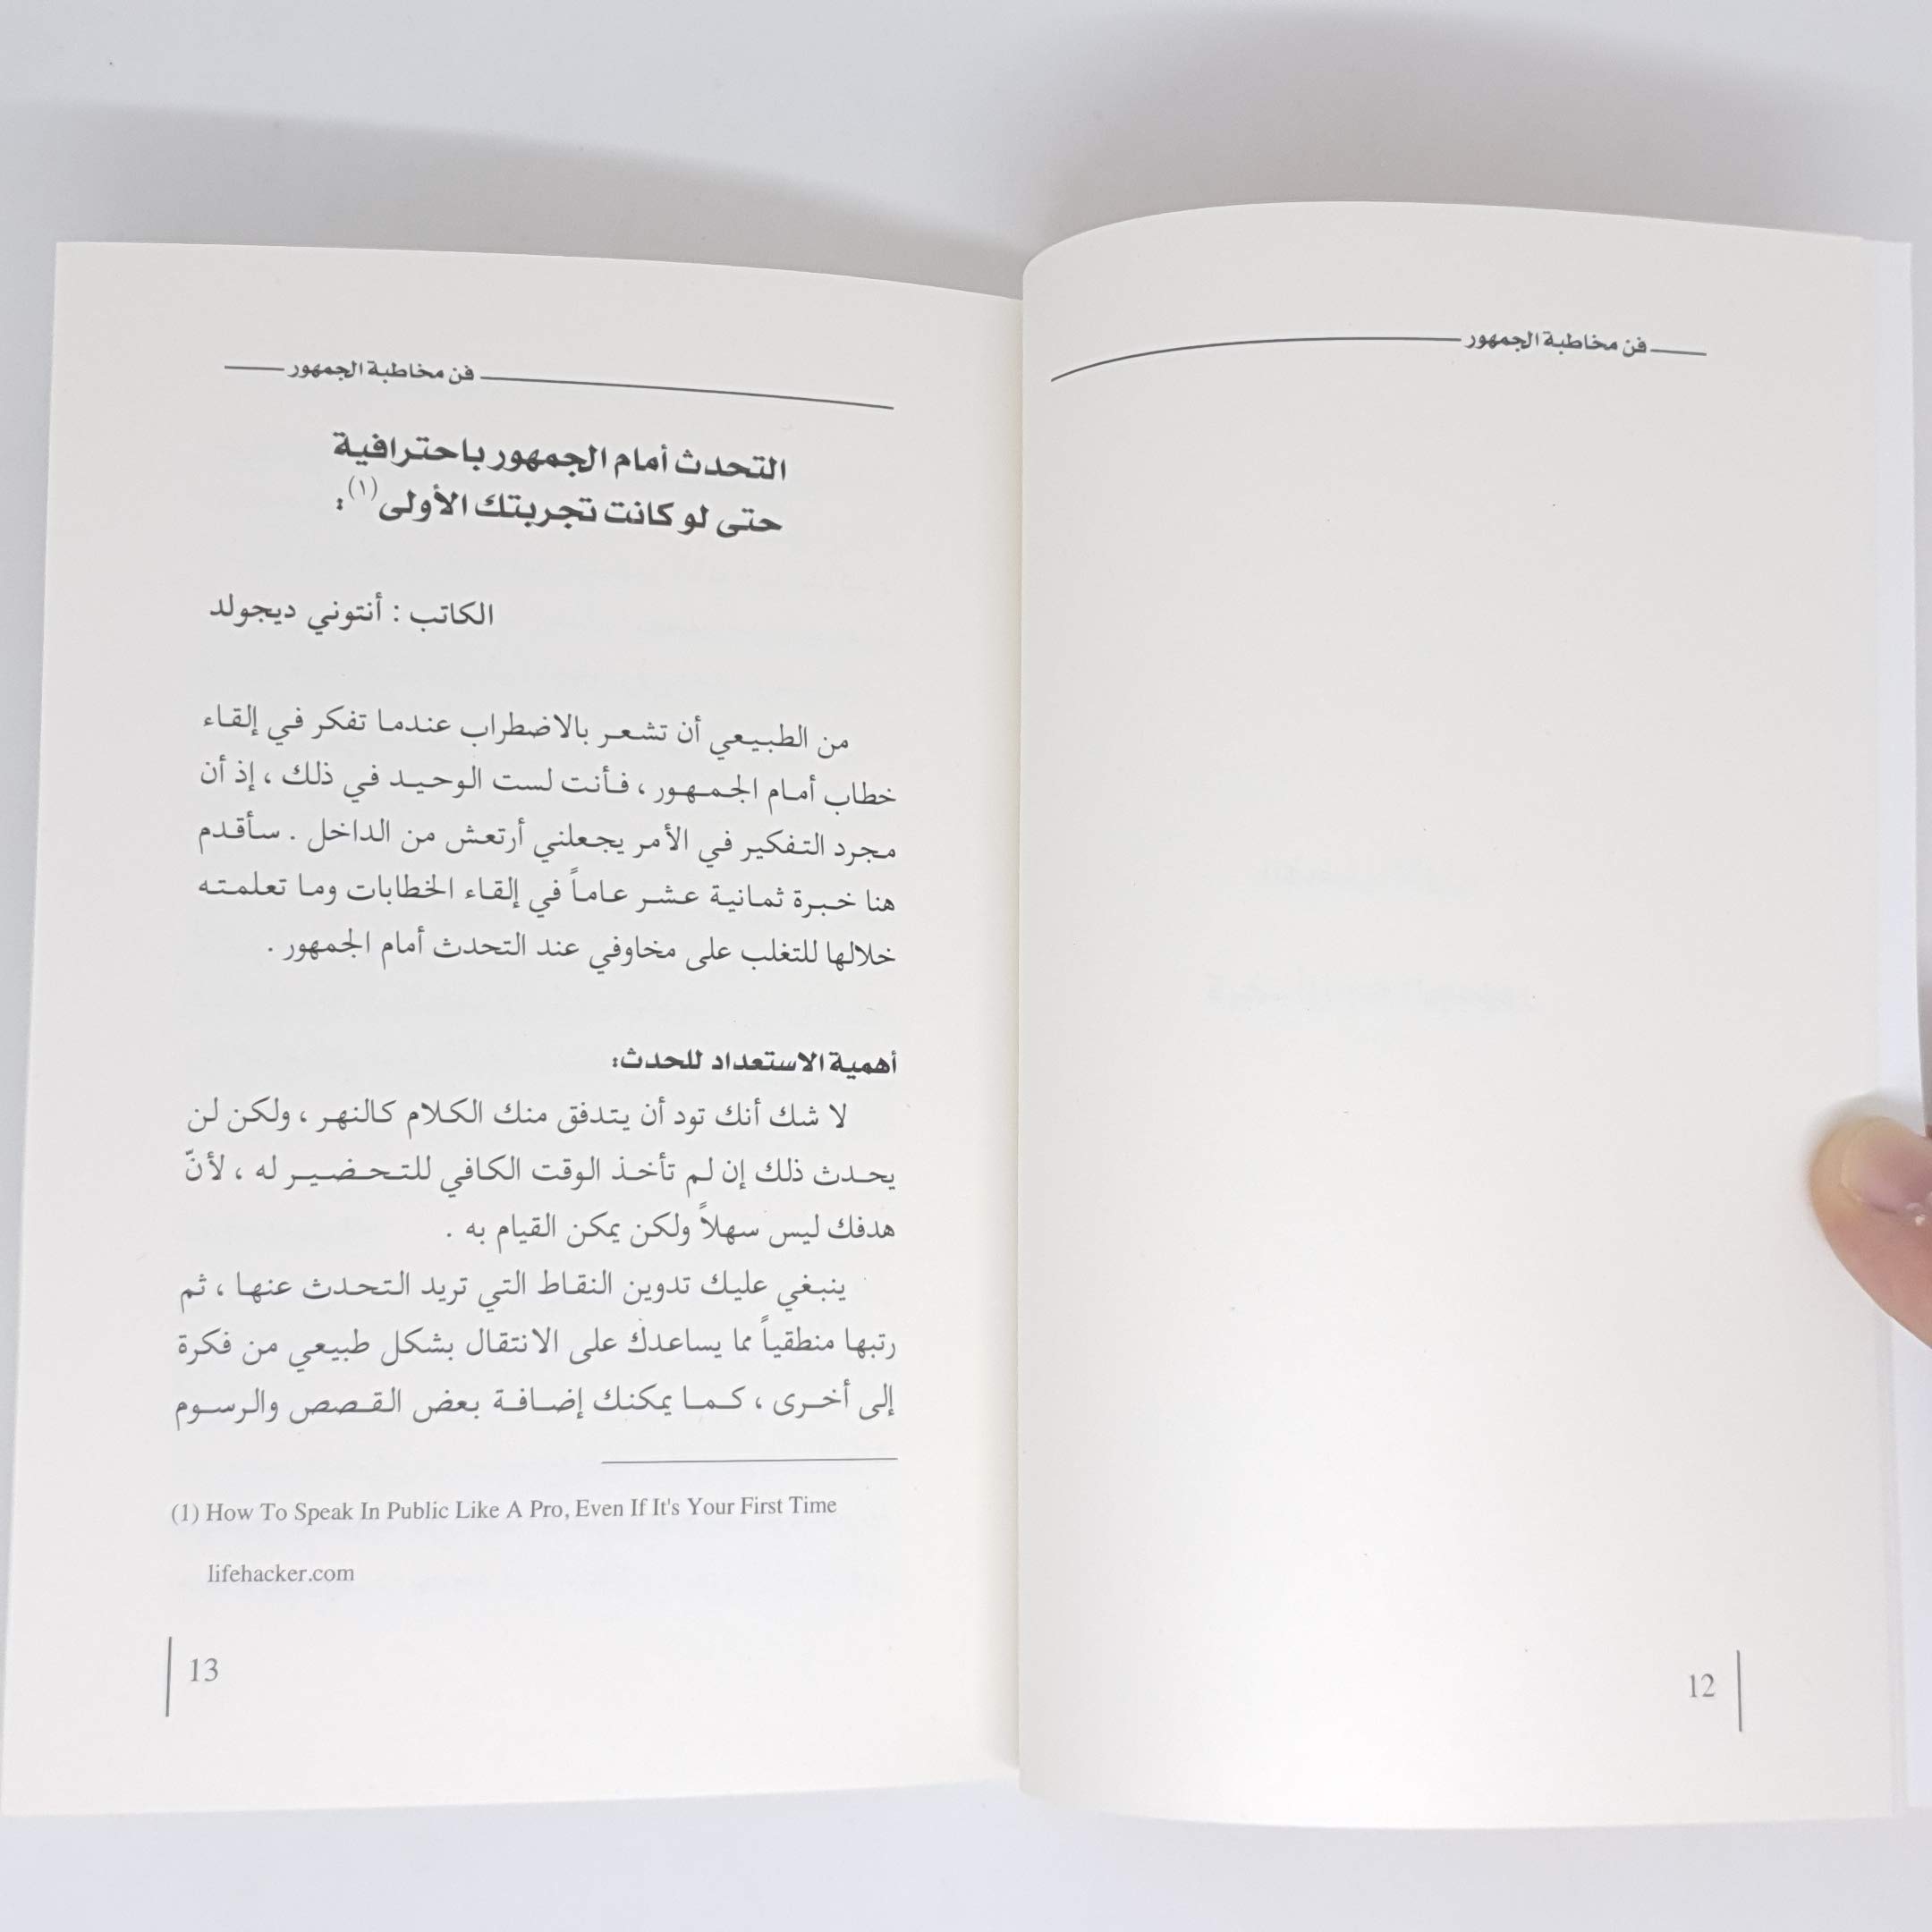 فن مخاطبة الجمهور
12
فن مخاطبة الجمهور
التحدث أمام الجمهور باحترافية
حتى لو كانت تجربتك الأولى(١):
الكاتب : أنتوني ديجولد
من الطبيعي أن تشعر بالاضطراب عندما تفكر في إلقاء
خطاب أمام الجمهور ، فأنت لست الوحيد في ذلك ، إذ أن
مجرد التفكير في الأمر يجعلني أرتعش من الداخل . سأقدم
هنا خبرة ثمانية عشر عاماً في إلقاء الخطابات وما تعلمته
خلالها للتغلب على مخاوفي عند التحدث أمام الجمهور .
أهمية الاستعداد للحدث:
لا شك أنك تود أن يتدفق منك الكلام كالنهر ، ولكن لن
يحدث ذلك إن لم تأخذ الوقت الكافي للتحضير له ، لأنّ
هدفك ليس سهلاً ولكن يمكن القيام به .
ينبغي عليك تدوين النقاط التي تريد التحدث عنها ، ثم
رتبها منطقياً مما يساعدك على الانتقال بشكل طبيعي من فكرة
إلى أخرى ، كما يمكنك إضافة بعض القصص والرسوم
(1) How To Speak In Public Like A Pro, Even If It's Your First Time
lifehacker.com
13